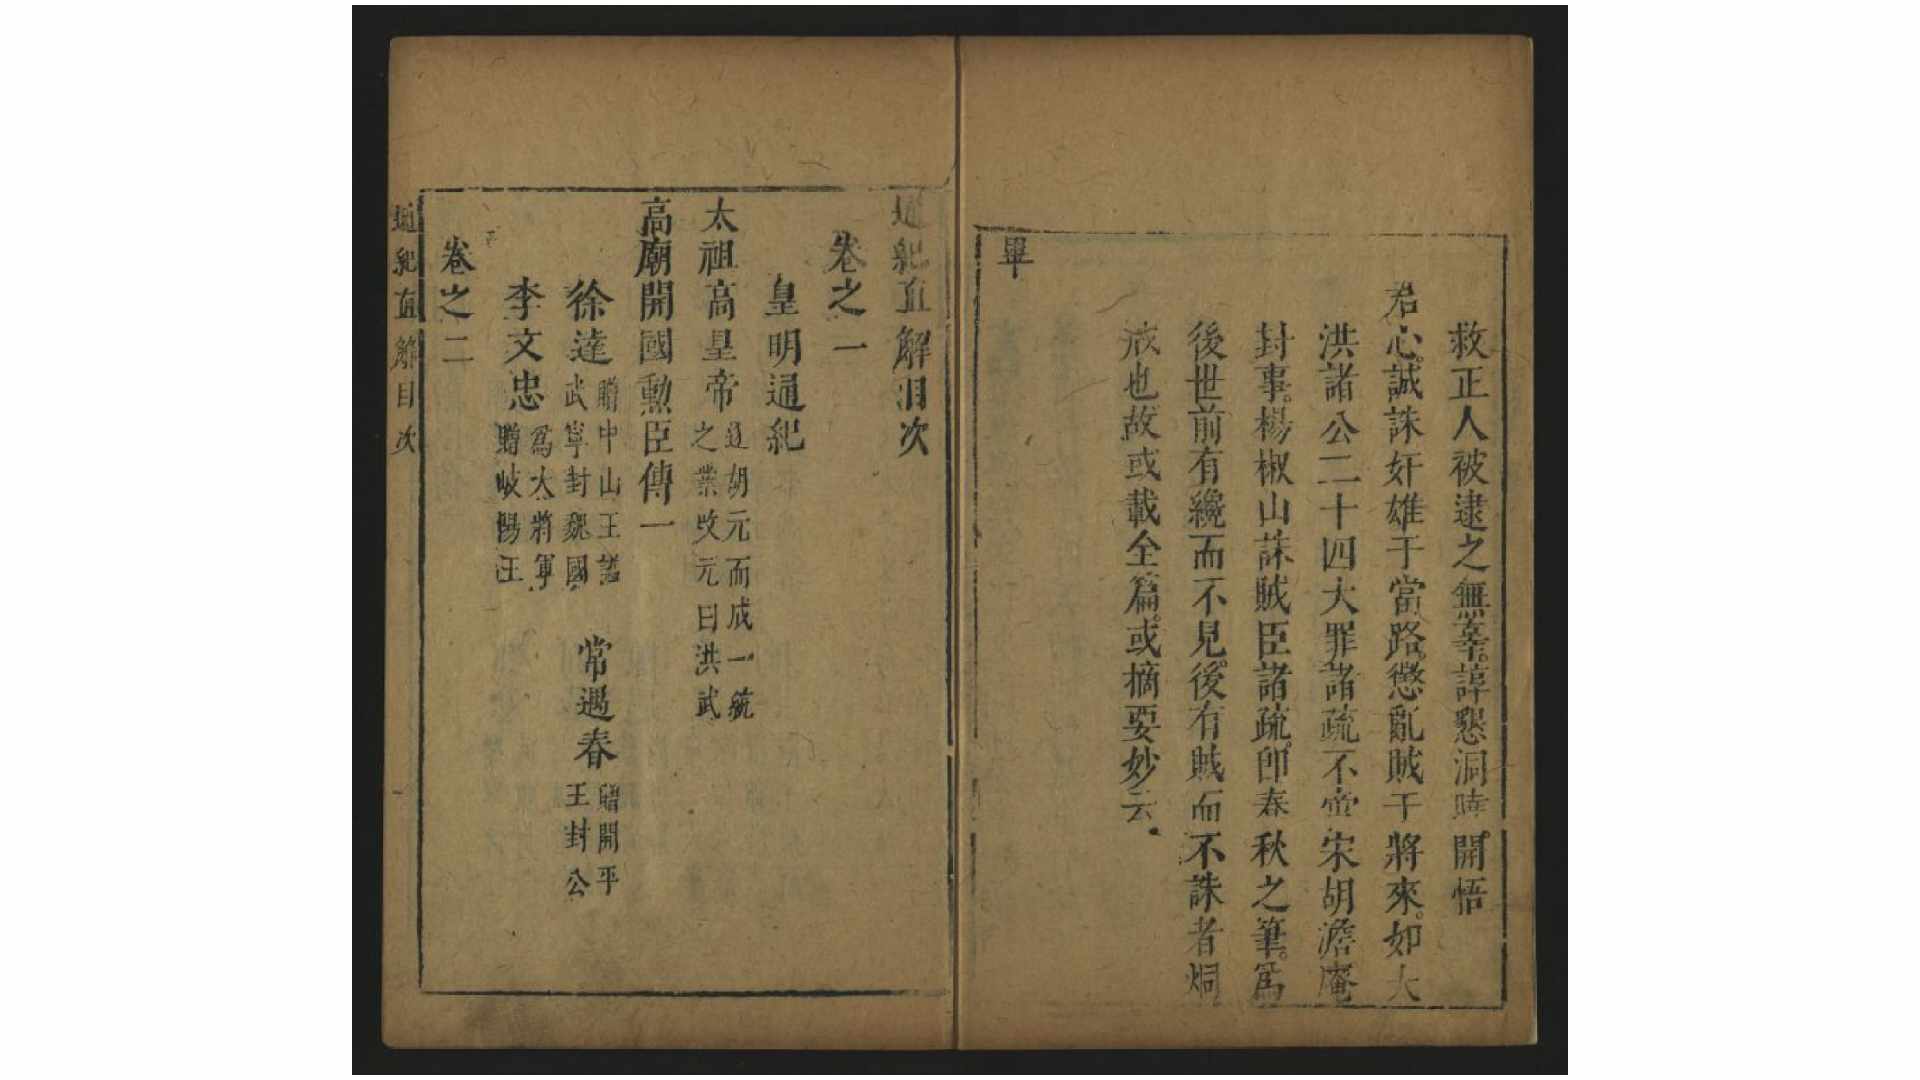 救正人被逮之無辜。諄懇洞曉。開悟
君心。誠誅奸雄于當路。懲亂賊于將來。如大
洪諸公二十四大罪諸疏不啻宋胡澹庵
封事。楊椒山誅賊臣諸疏。即春秋之筆。爲
後世前有纔而不見。後有賊而不誅者烱
戒也故或載全篇。或摘要妙云。
畢
通紀直解目次
卷之一
皇明通紀
太祖高皇帝 逐胡元而成一統之業改元曰洪武
高廟開國勳臣傳一
徐達 贈中山王諡武寧封魏國 常遇春 贈開平王封公
李文忠 爲大將軍贈岐陽王
卷之二
通紀直解目次